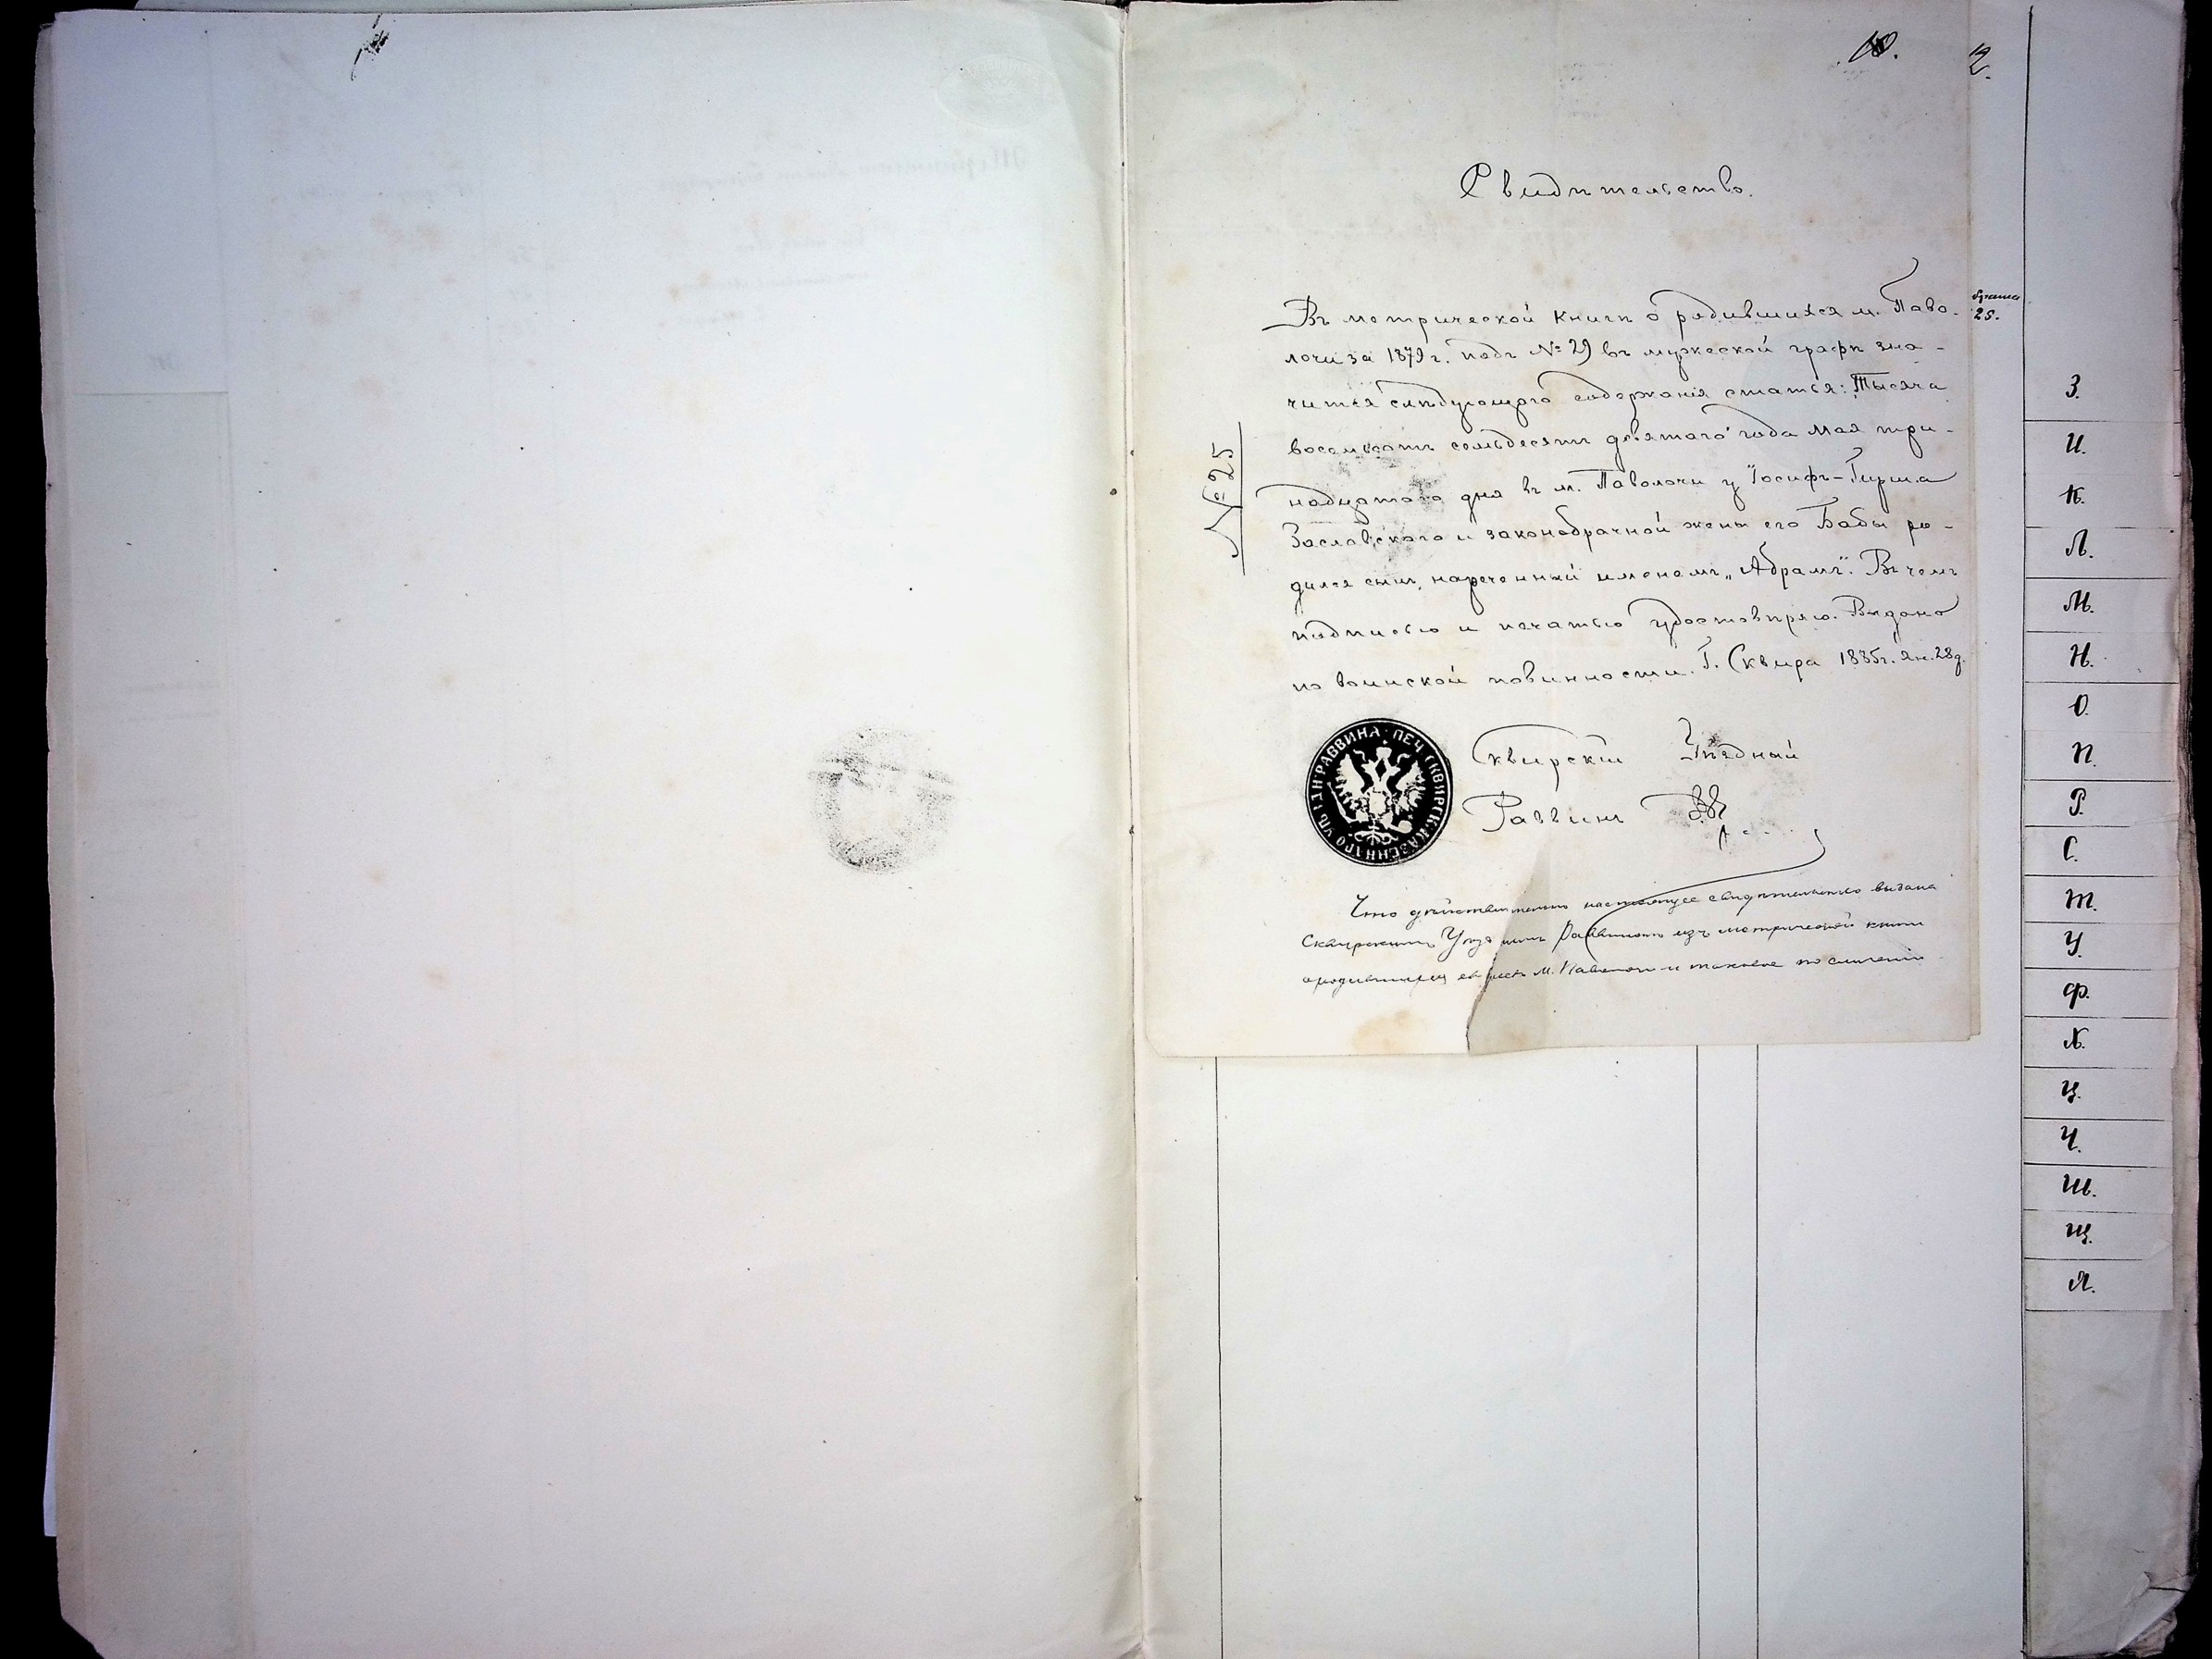 12.
Свидѣтельство.
Въ метрической книгѣ о родившихся м. Паво-
лочи за 1879 г. подъ № 29 въ мужеской графѣ зна-
чится слѣдующого содержанія статья: „Тысяча
восемьсотъ семьдесятъ девятого года Мая три-
надцатого дня въ м. Паволочи у Іосифъ-Гирша
Заславского и законобрачной жены его Бабы ро-
дился сынъ, нареченный именемъ „Абрамъ“. Въ чемъ
подписью и печатью удостовѣряю. Выдано
по воинской повинности. Г. Сквира 1885 г. Ян. 28 д.
№ 25
25.
ПЕЧ. СКВИРСК. КАЗЕННАГО УѢЗДН. РАВВИНА
Сквирскій Уѣздный
Раввинъ
Что дѣйствительно настоящее свидѣтельство выдана
Сквирскимъ Уѣзднымъ Раввиномъ изъ метрической книги
о родившихся евреевъ М. Паволочи и таковое по сличеніи
З.
И.
К.
Л.
М.
Н.
О.
П.
Р.
С.
Т.
У.
Ф.
Х.
Ц.
Ч.
Ш.
Щ.
Я.